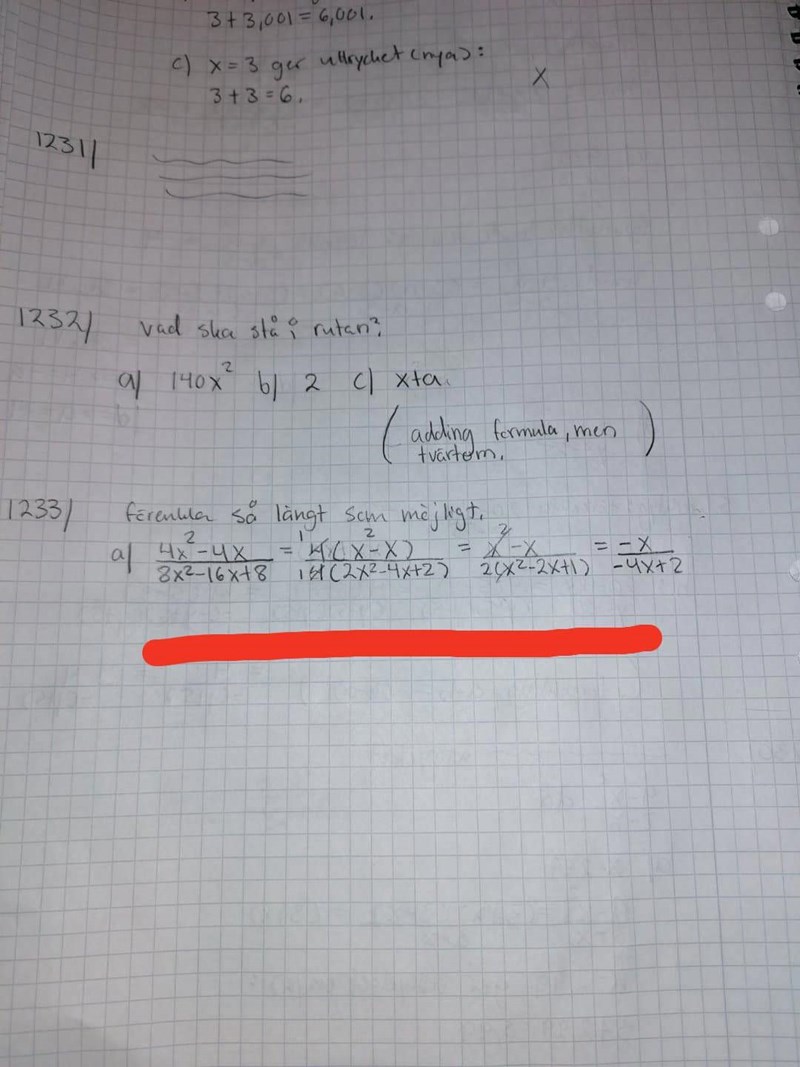 3+3,001=6,001.
c) x=3 ger uttrycket (nya):
3+3=6.
X
1231/
1232/ Vad ska stå i rutan?
a) 140x² b) 2 c) x+a.
(adding formula, men
tvärtom.)
1233/ Förenkla så långt som möjligt.
a) (4x²-4x)/(8x²-16x+8) = 4(x²-x)/4(2x²-4x+2) = (x²-x)/2(x²-2x+1) = -x/(-4x+2)